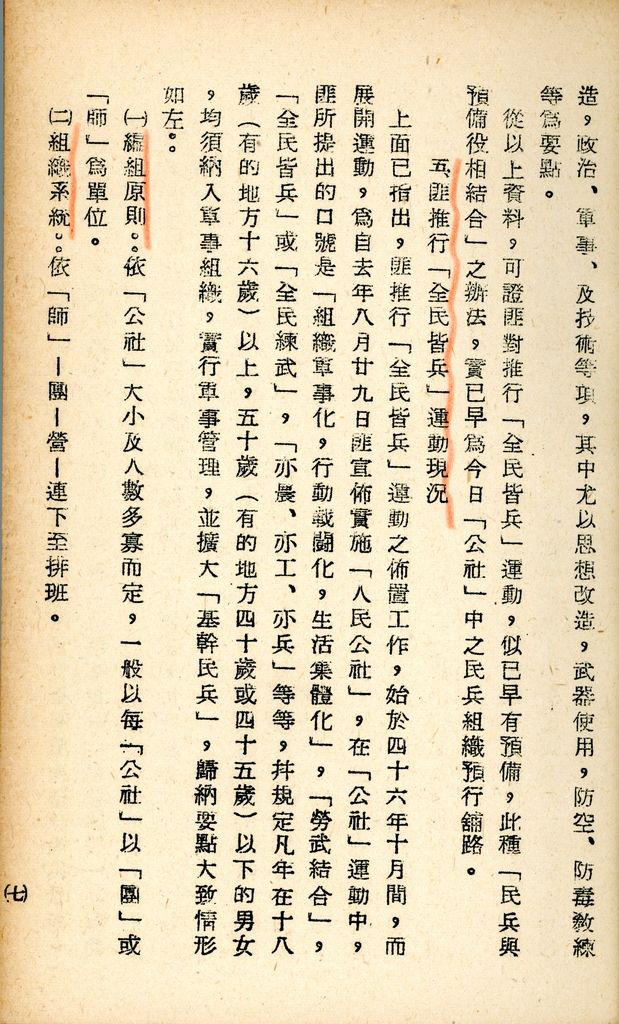 造，政治、軍事、及技術等項，其中尤以思想改造，武器使用，防空、防毒教練
等為要點。
從以上資料，可證匪對推行「全民皆兵」運動，似已早有預備，此種「民兵與
預備役相結合」之辦法，實已早為今日「公社」中之民兵組織預行舖路。
五、匪推行「全民皆兵」運動現況
上面已指出，匪推行「全民皆兵」運動之佈置工作，始於四十六年十月間，而
展開運動，為自去年八月廿九日匪宣佈實施「人民公社」，在「公社」運動中，
匪所提出的口號是「組織軍事化，行動戰鬪化，生活集體化」，「勞武結合」，
「全民皆兵」或「全民練武」，「亦農、亦工、亦兵」等等，幷規定凡年在十八
歲（有的地方十六歲）以上，五十歲（有的地方四十歲或四十五歲）以下的男女
，均須納入軍事組織，實行軍事管理，並擴大「基幹民兵」，歸納要點大致情形
如左：。
㈠編組原則：。依「公社」大小及人數多寡而定，一般以每「公社」以「團」或
「師」為單位。
㈡組織系統：。依「師」—團—營—連下至排班。
㈦